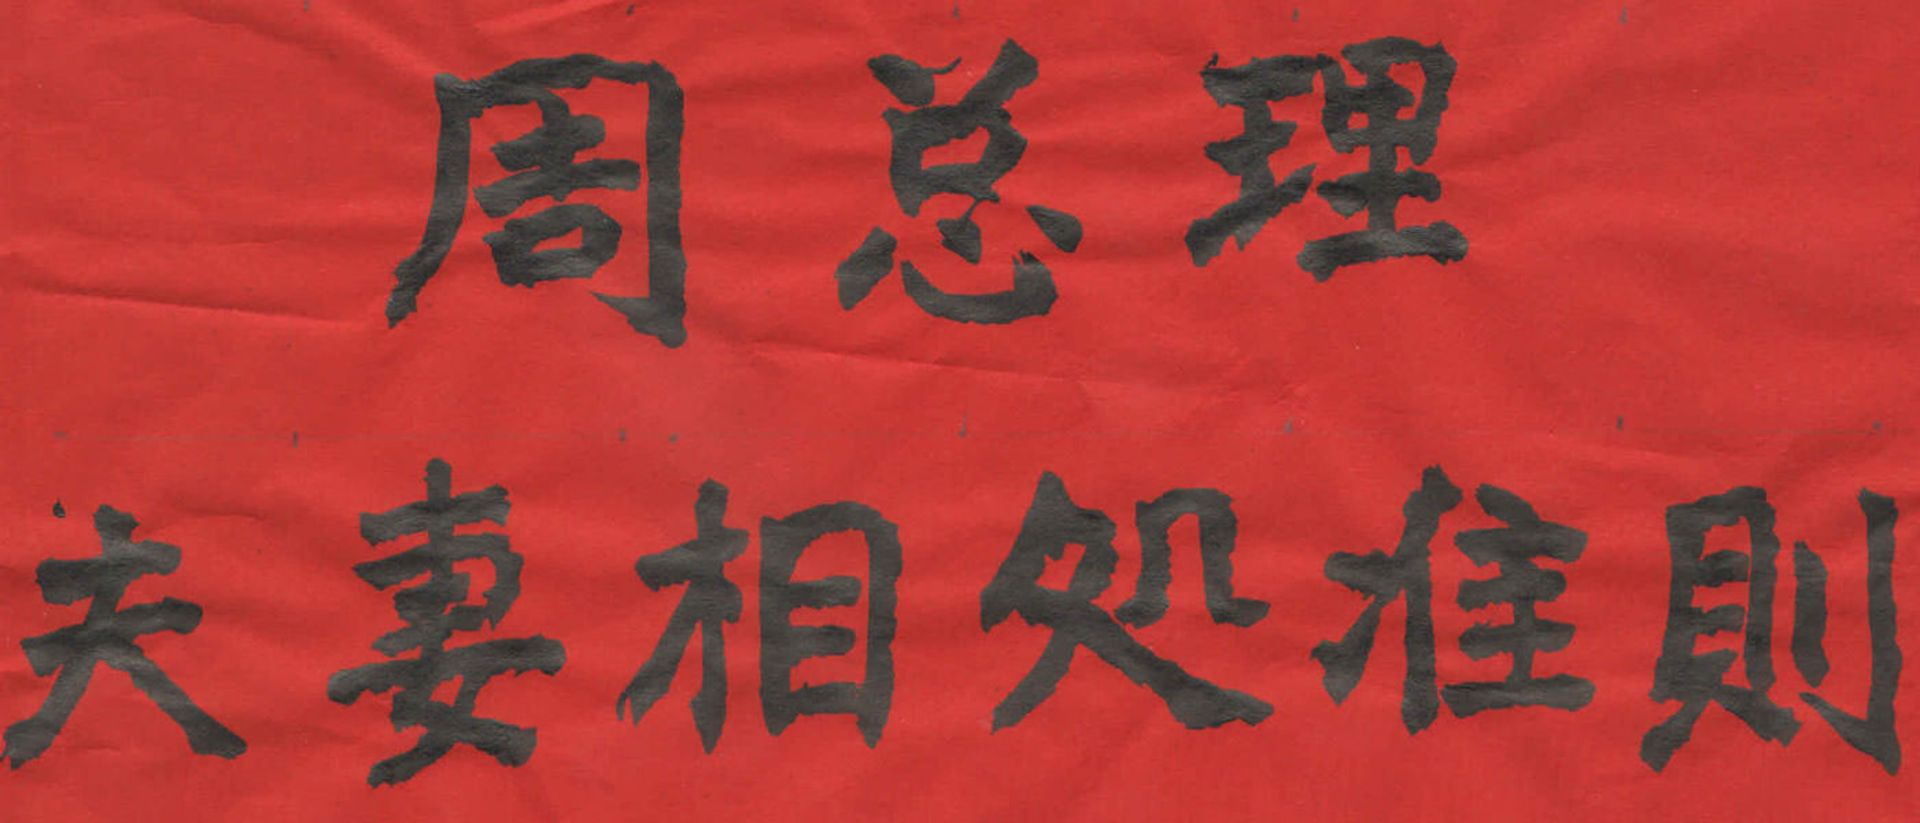 周总理
夫妻相処准則